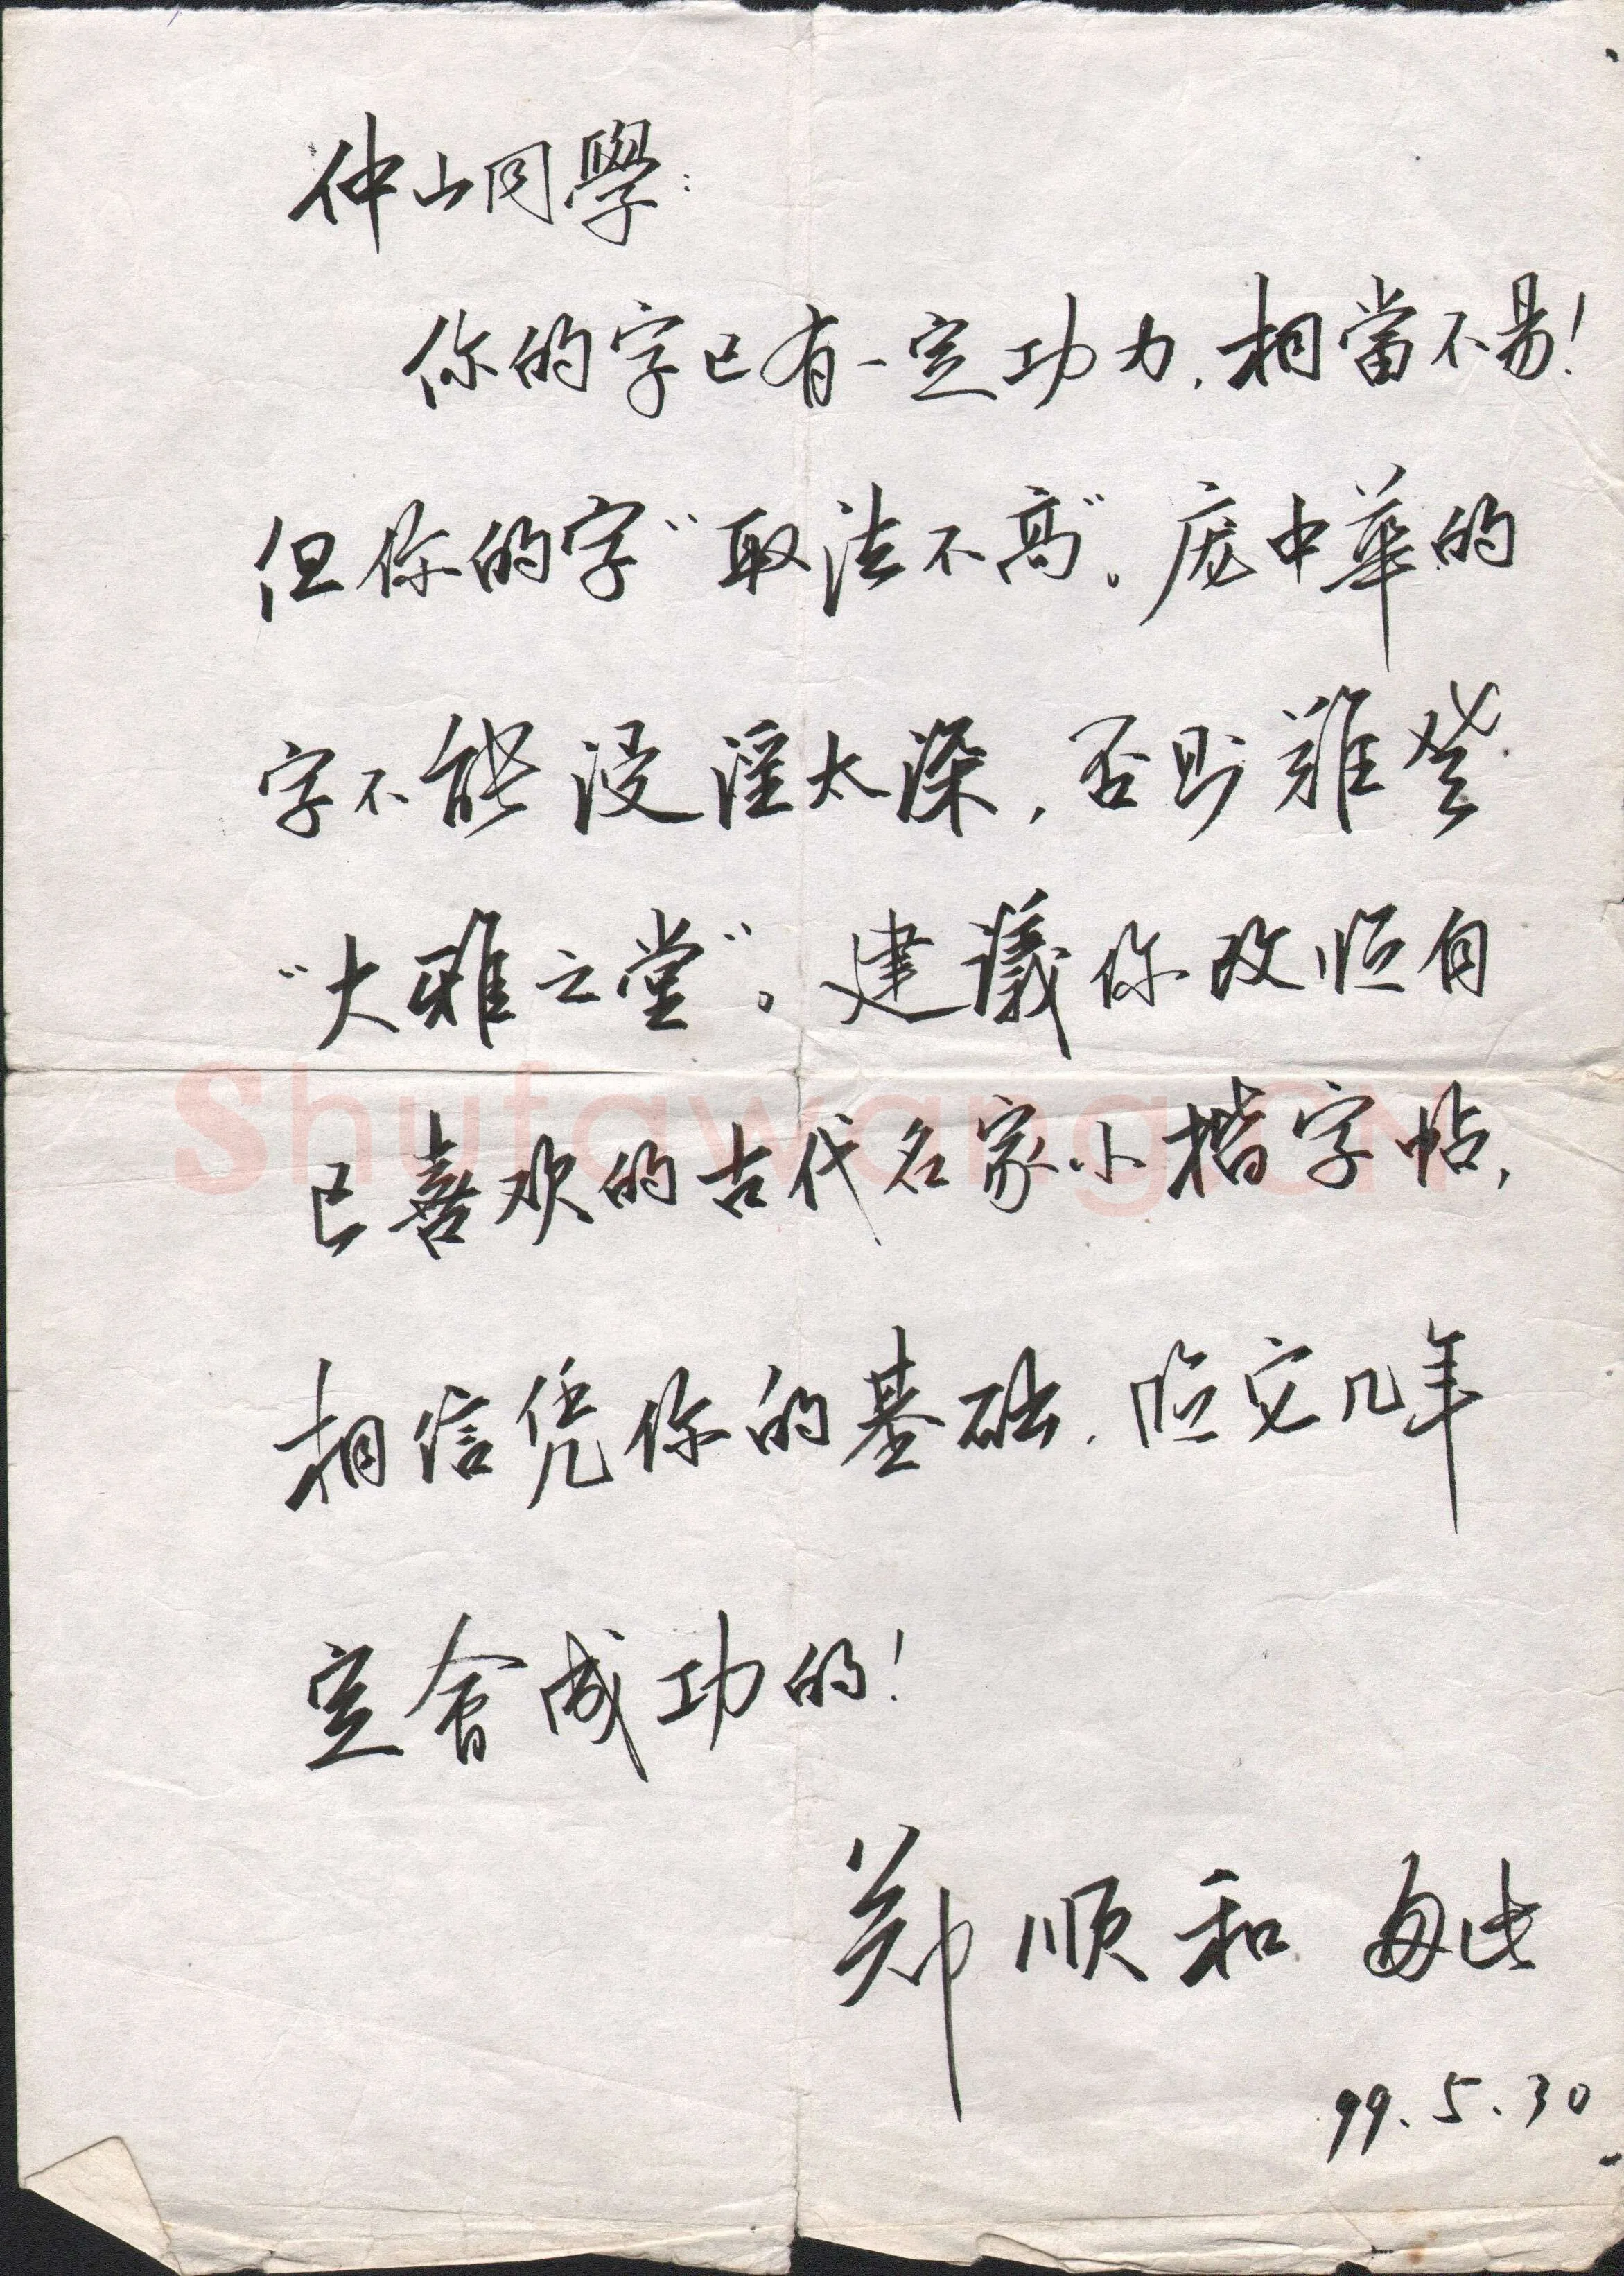 仲山同學：
你的字已有一定功力，相當不易！
但你的字“取法不高”。庞中華的
字不能浸淫太深，否則難登
“大雅之堂”。建議你改临自
已喜欢的古代名家小楷字帖，
相信凭你的基础，临它几年
定會成功的！
郑顺和
99.5.30
Shufawang.CN